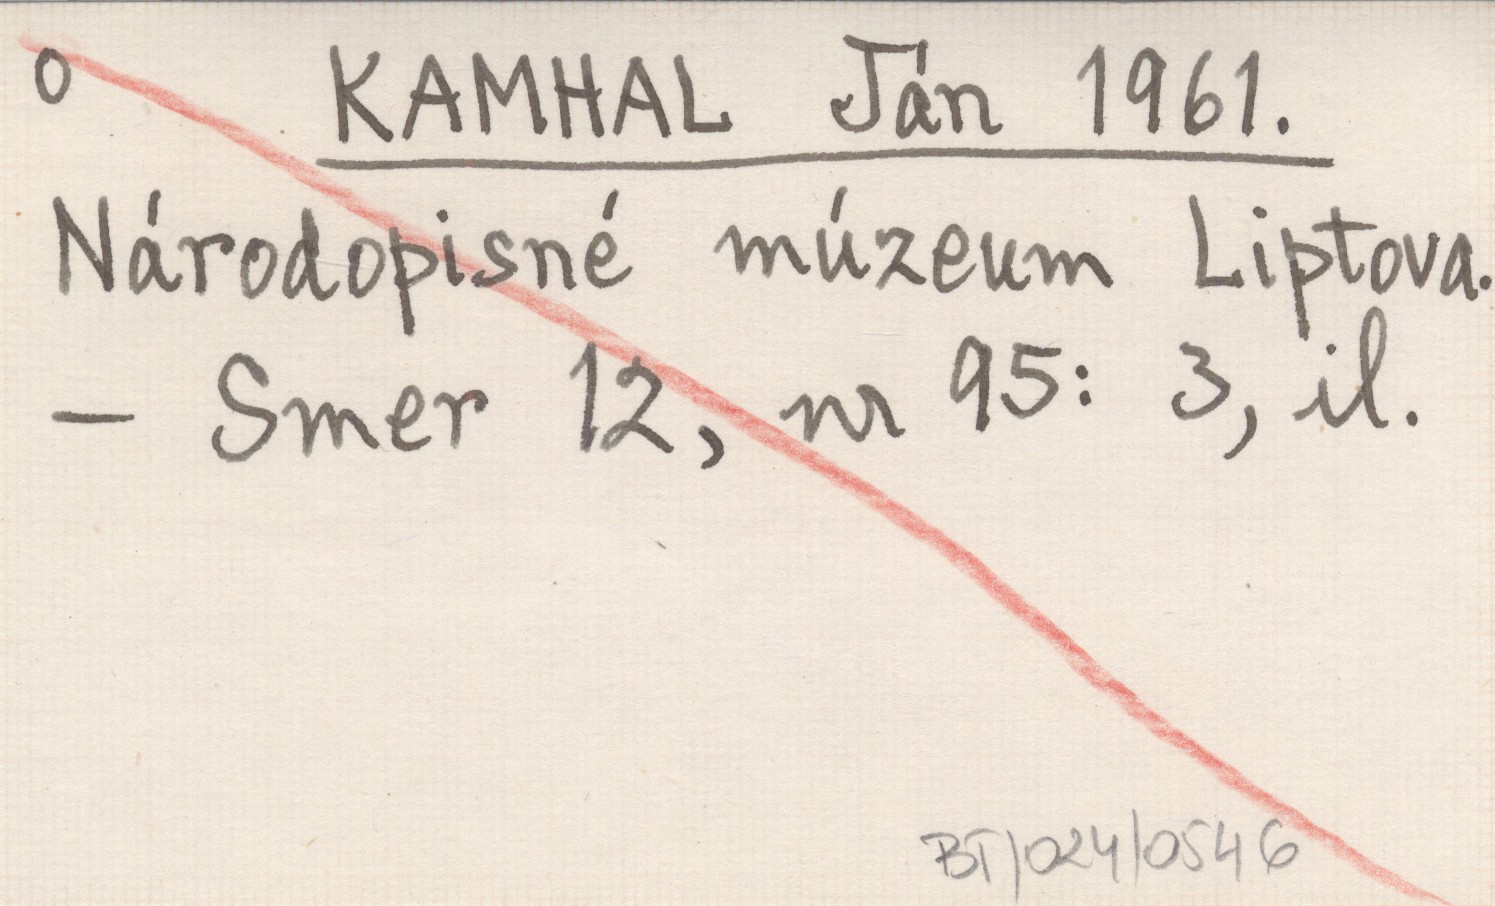 o KAMHAL Ján 1961.
Národopisné múzeum Liptova.
— Smer 12, nr 95: 3, il.
BT/024/0546